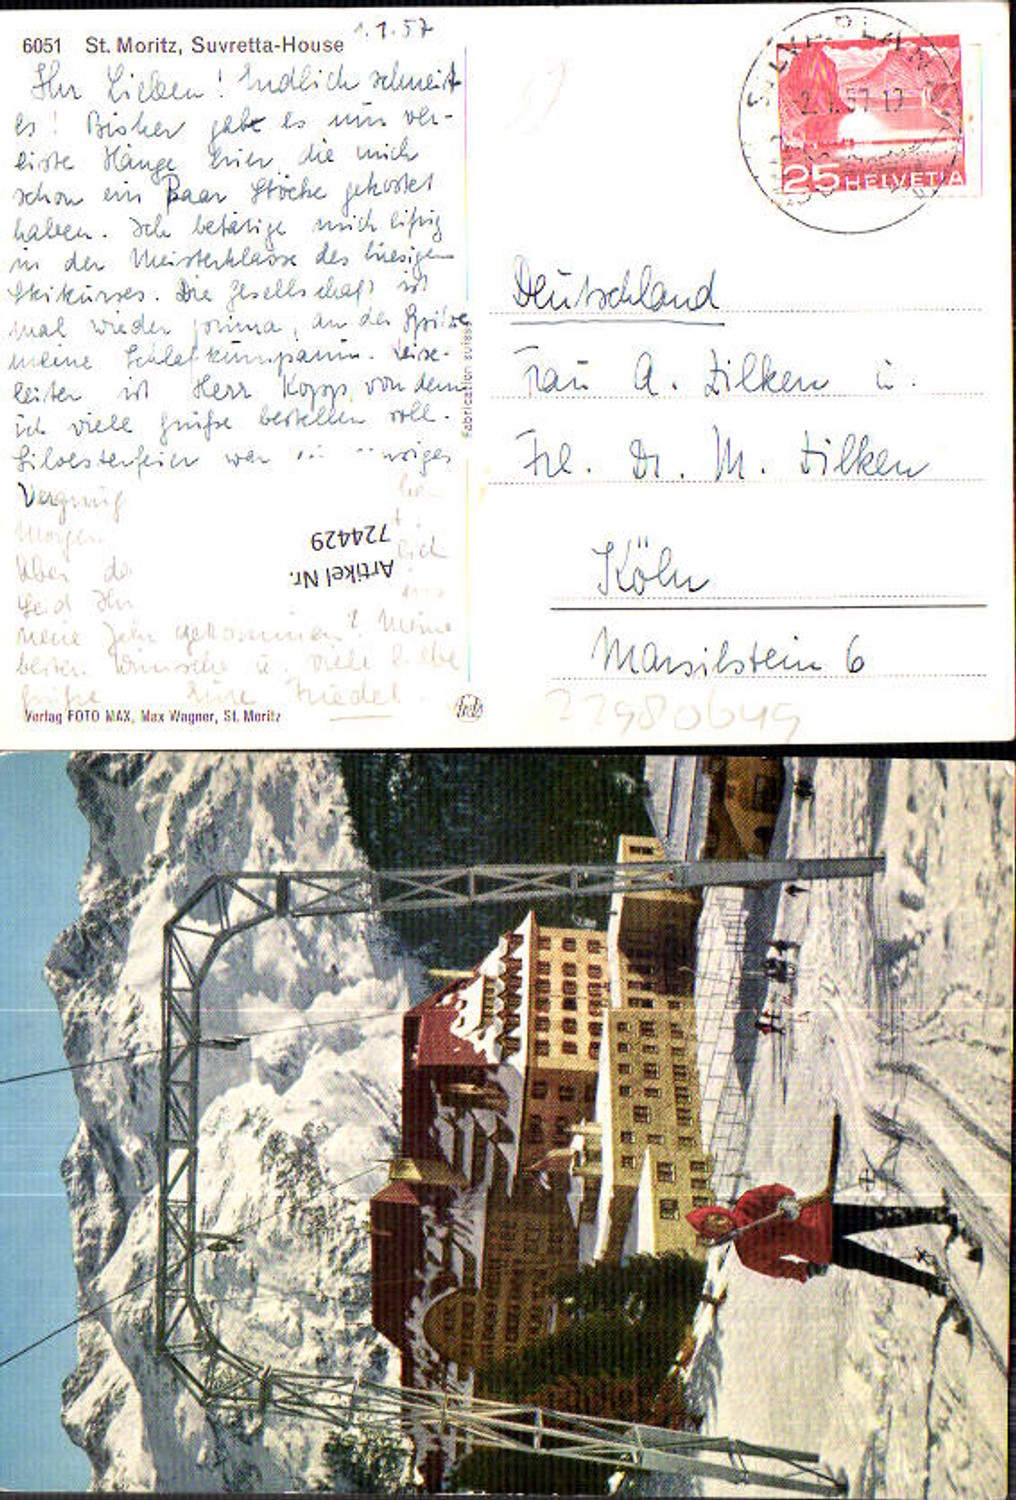 6051 St. Moritz, Suvretta-House 1.1.57
Ihr Lieben! Endlich schneit
es! Bisher gabt es nur ver-
eiste Hänge hier, die mich
schon ein Paar Stöcke gekostet
haben. Ich betätige mich eifrig
in der Meisterklasse des hiesigen
Skikurses. Die Gesellschaft ist
mal wieder prima, an der Spitze
meine Schlafkumpanin. Reise-
leiter ist Herr Kopp, von dem
ich viele Grüße bestellen soll.
Silvesterfeier war
Vergnüg
Morgen
Über
Seid Ihr ins
neue Jahr gekommen? Meine
besten Wünsche u. viele liebe
Grüße Eure Friedel.
Verlag FOTO MAX, Max Wagner, St. Moritz
Fabrication suisse
Artikel Nr.
724429
SILVAPLANA
2.1.57.17
25 HELVETIA
Deutschland
Frau A. Zilken u.
Frl. Dr. M. Zilken
Köln
Marsilstein 6
22980649